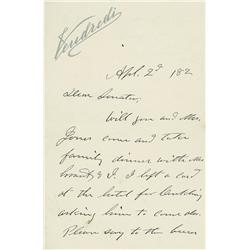 Vendredi
Apl. 2d 182
Dear Senator,
Will you and Mrs.
Jones come and take
family dinner with Mrs
& I. I left a card
at the hotel for
asking him to come also.
Please say to the